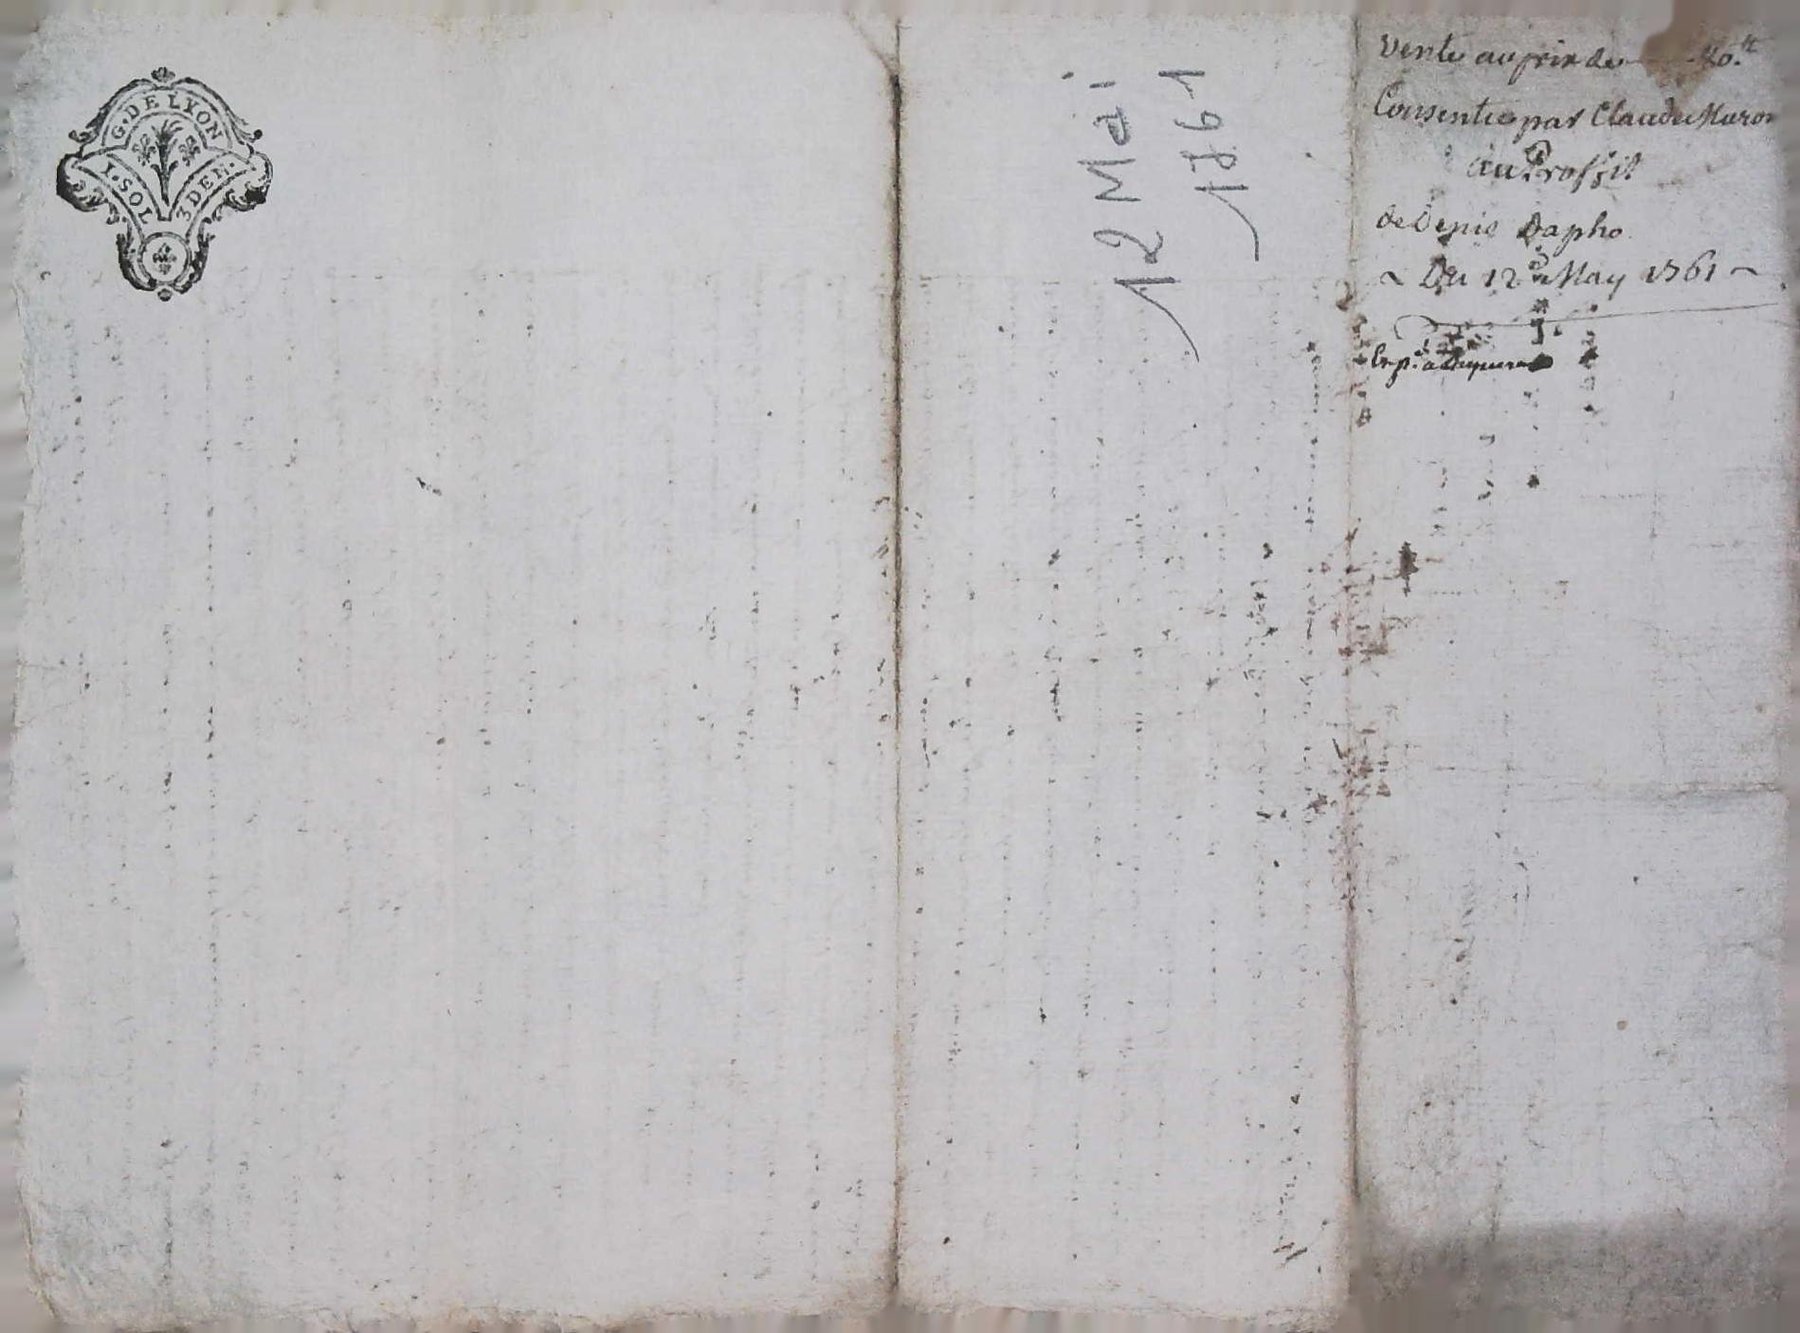 G. DE LYON
I. SOL 3 DEN.
12 Mai
1761
Vente au prix de 80.tt
Consentie par Claude Muron
au Proffit
de Denis Dapho
~ Du 12e May 1761 ~